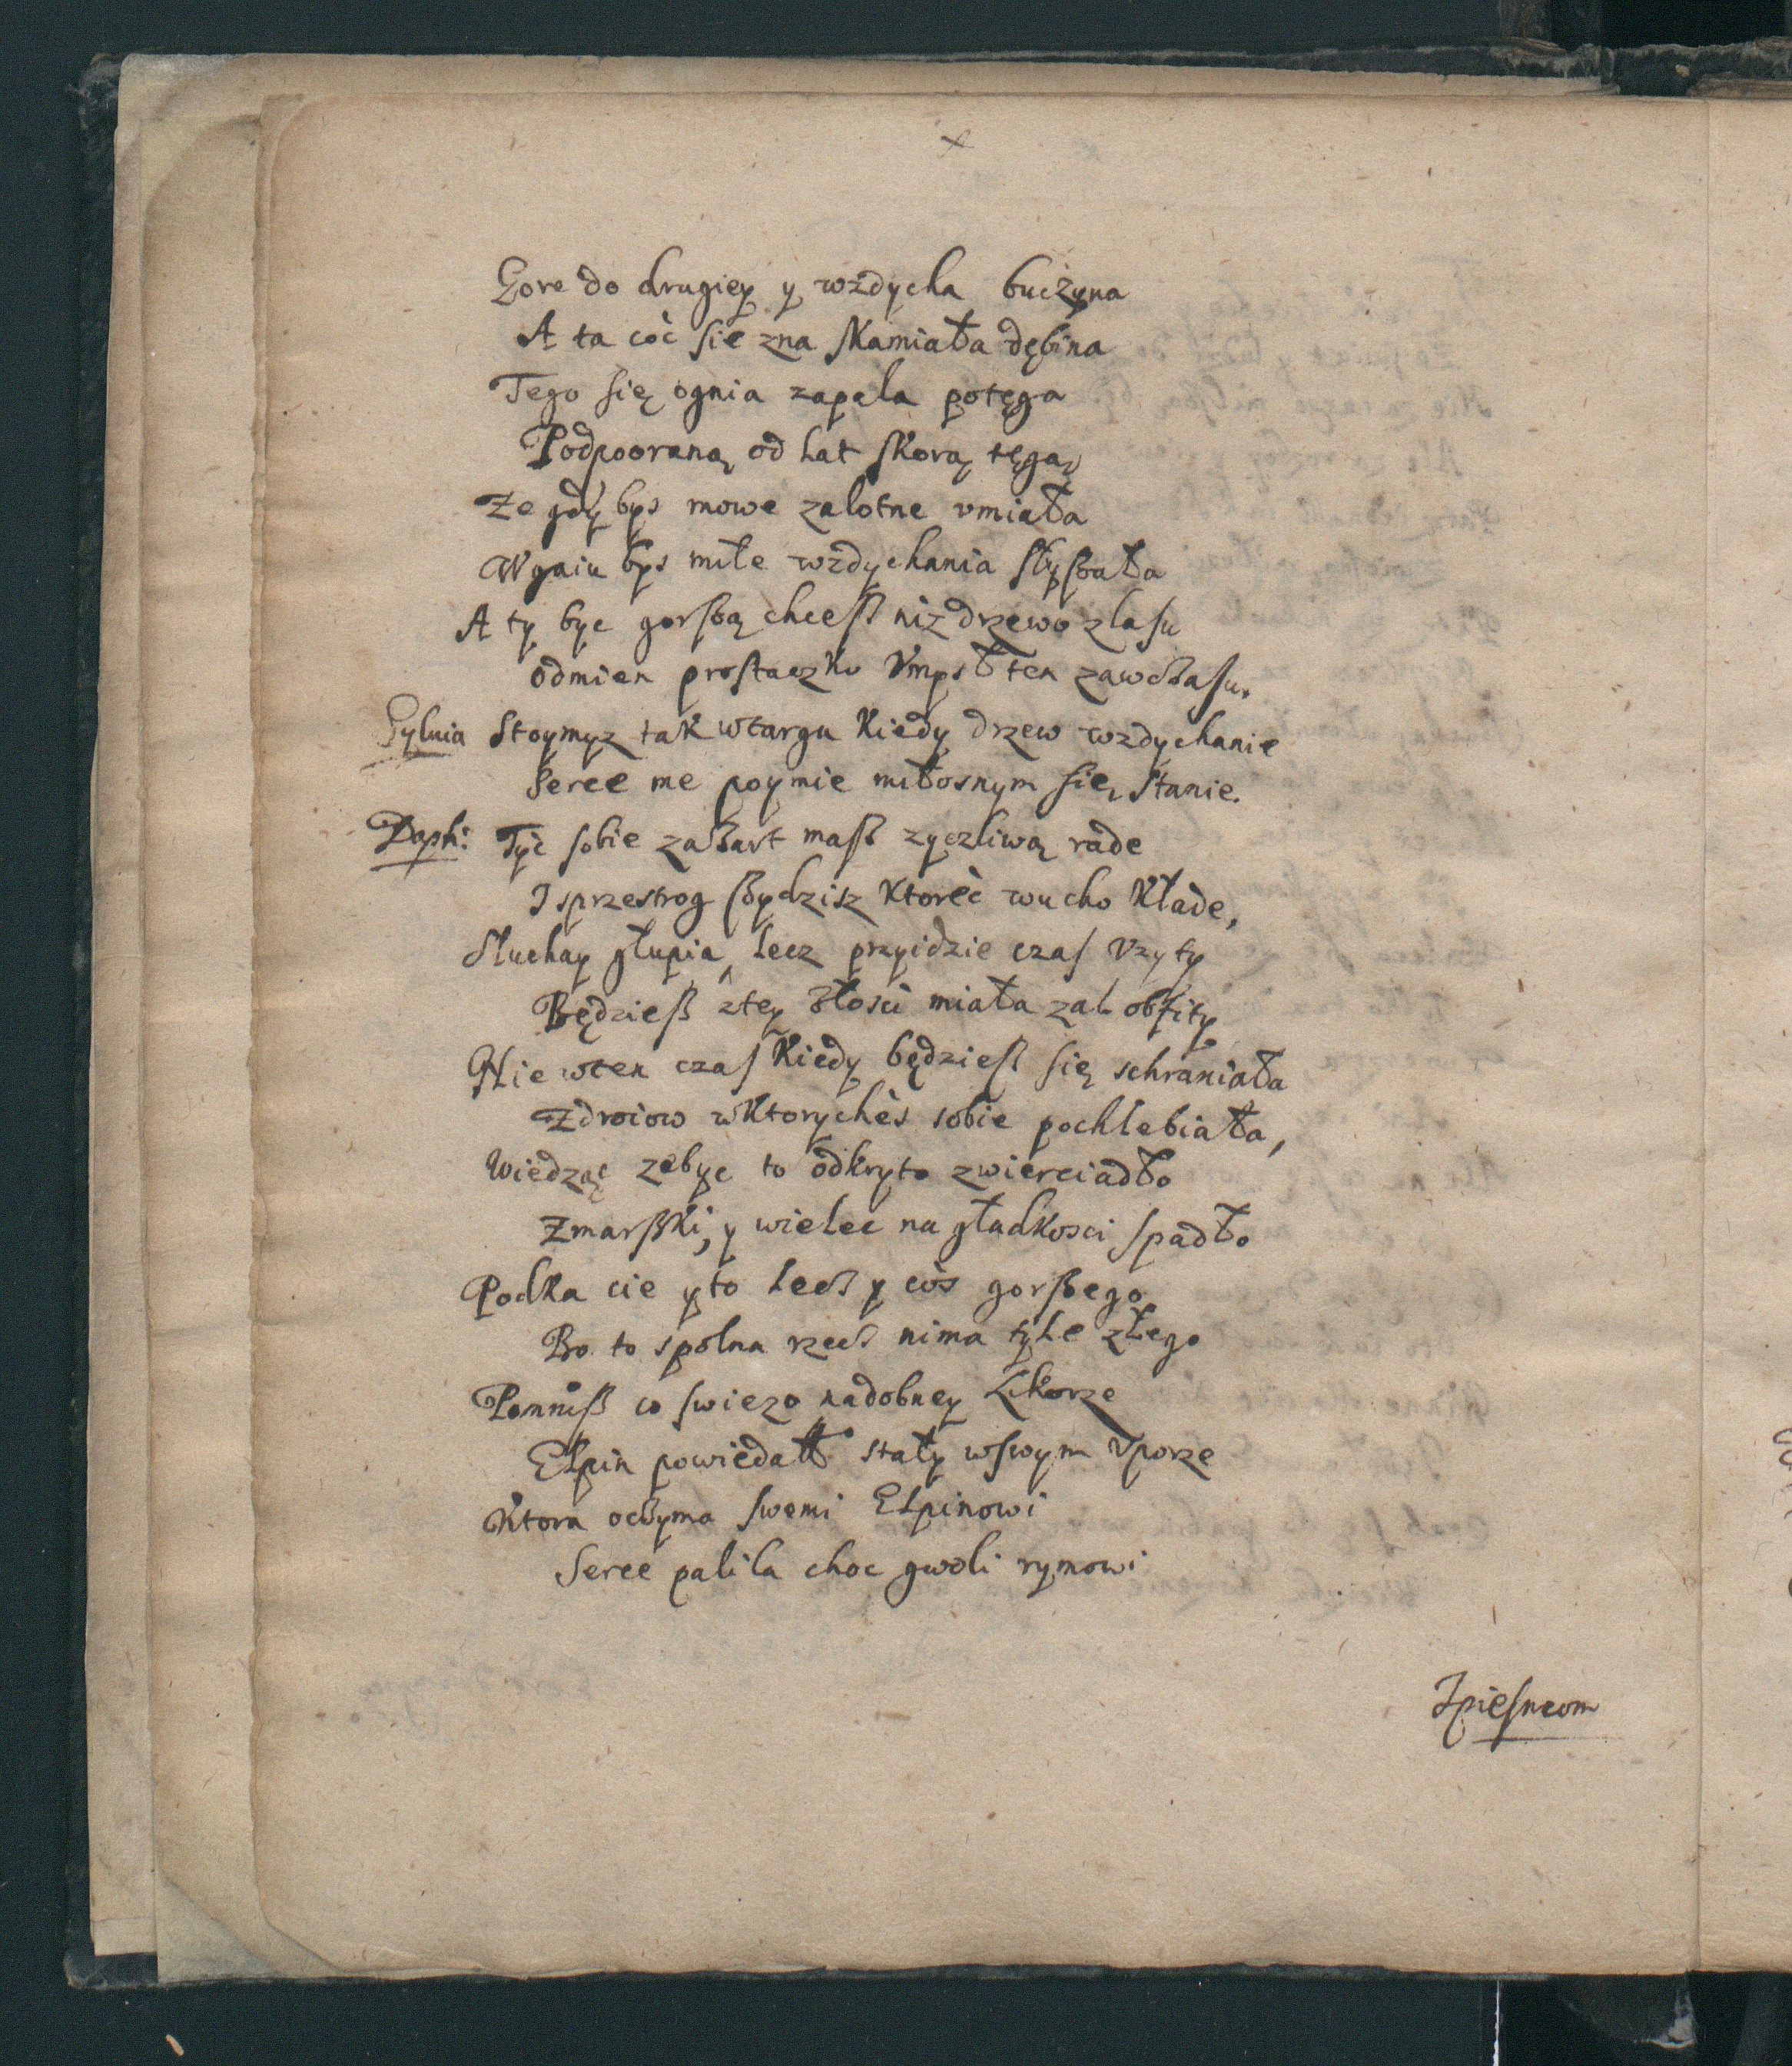 Gore do drugiey y wzdycha buczyna
A ta coć sie zna skamiała dębina
Tego się ognia zapala potęga
Podpooraną od lat skorą tęgą
Ze gdy bys mowe zalotne vmiała
W gaiu bys miłe wzdychania słyßała
A ty byc gorßą cheeß niz drzewo z lasu
odmien prostaczko Vmysł ten zawcßasu.
Sylvia Stoymyz tak wtargu kiedy drzew wzdychanie
Serce me poymie miłosnym się stanie.
Daph: Tyć sobie zaßart maß zyczliwą rade
I sprzestrog ßydzisz ktoreć wucho kłade,
Słuchay głupia, lecz przyidzie czas vzyty
Będzieß ztey złosci miała zal obfity
Nie wten czas kiedy będzieß się schraniała
Zdroiow wktorychès sobie pochlebiała,
Wiedząc zebyc to odkryto zwierciadło
Zmarßki, y wielec na gładkosci spadło
Podka cie y to lecß y cos gorßego
Bo to spolna rzecß nima tyle złego
Pomniß co swiezo nadobney Likorze
Elpin powiedał stały wswym vporze
Ktora ocßyma swemi Elpinowi
Serce palila choc gwoli rymowi
Ipiesneom